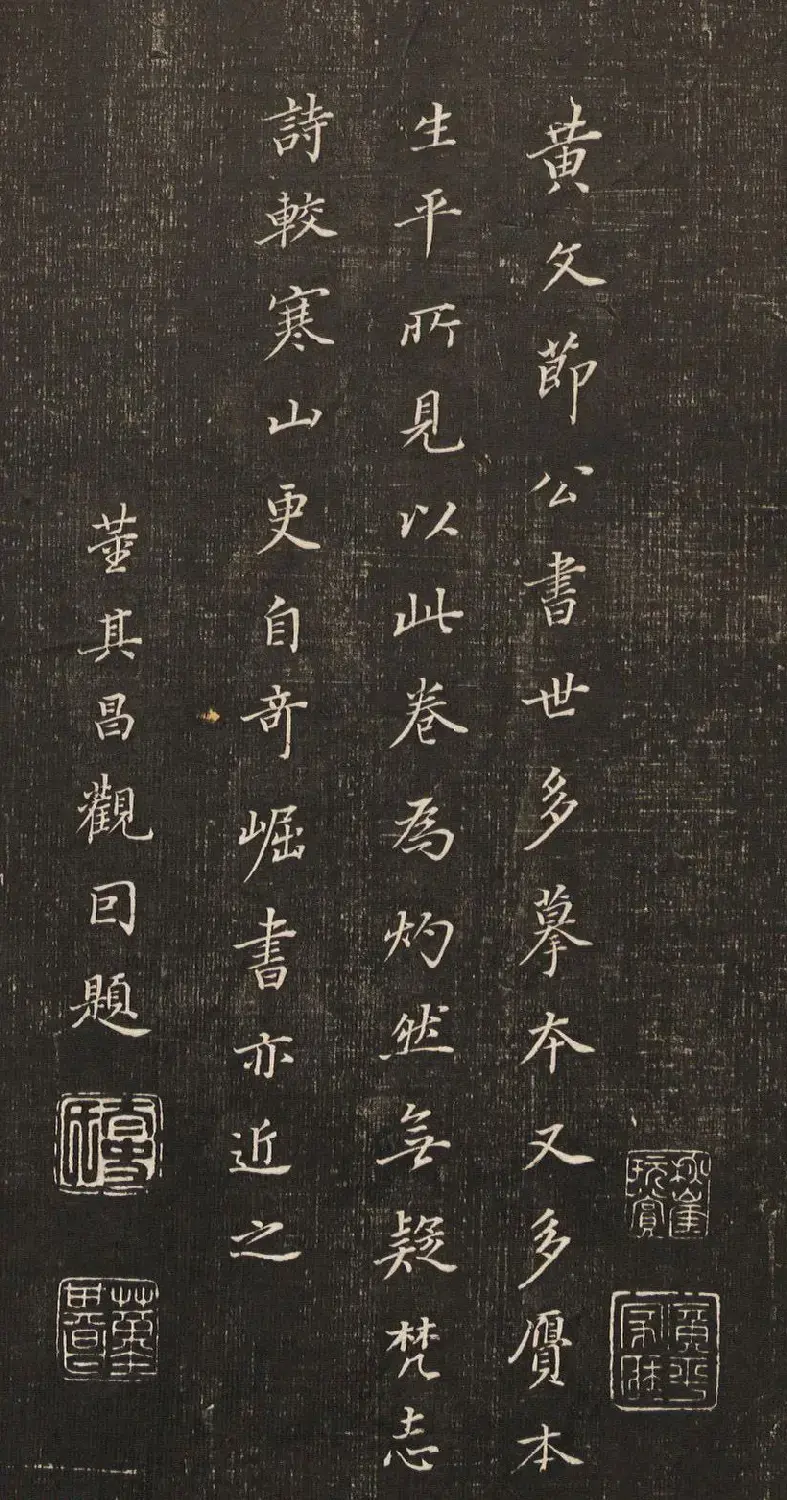 黄文節公書世多摹本又多贋本
生平所見以此卷為灼然無疑梵志
詩較寒山更自奇崛書亦近之
董其昌觀回題